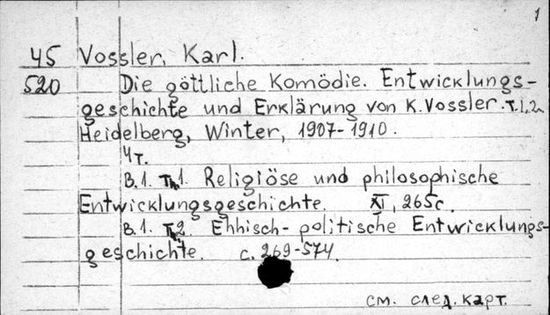 1
45 Vossler, Karl.
520 Die göttliche Komödie. Entwicklungs-
geschichte und Erklärung von K. Vossler. т. 1, 2.
Heidelberg, Winter, 1907-1910.
4т.
B.1. T.1. Religiöse und philosophische
Entwicklungsgeschichte. XI, 265c.
B.1. T.2. Ehhisch-politische Entwicklungs-
geschichte. c. 269-574.
см. след. карт.